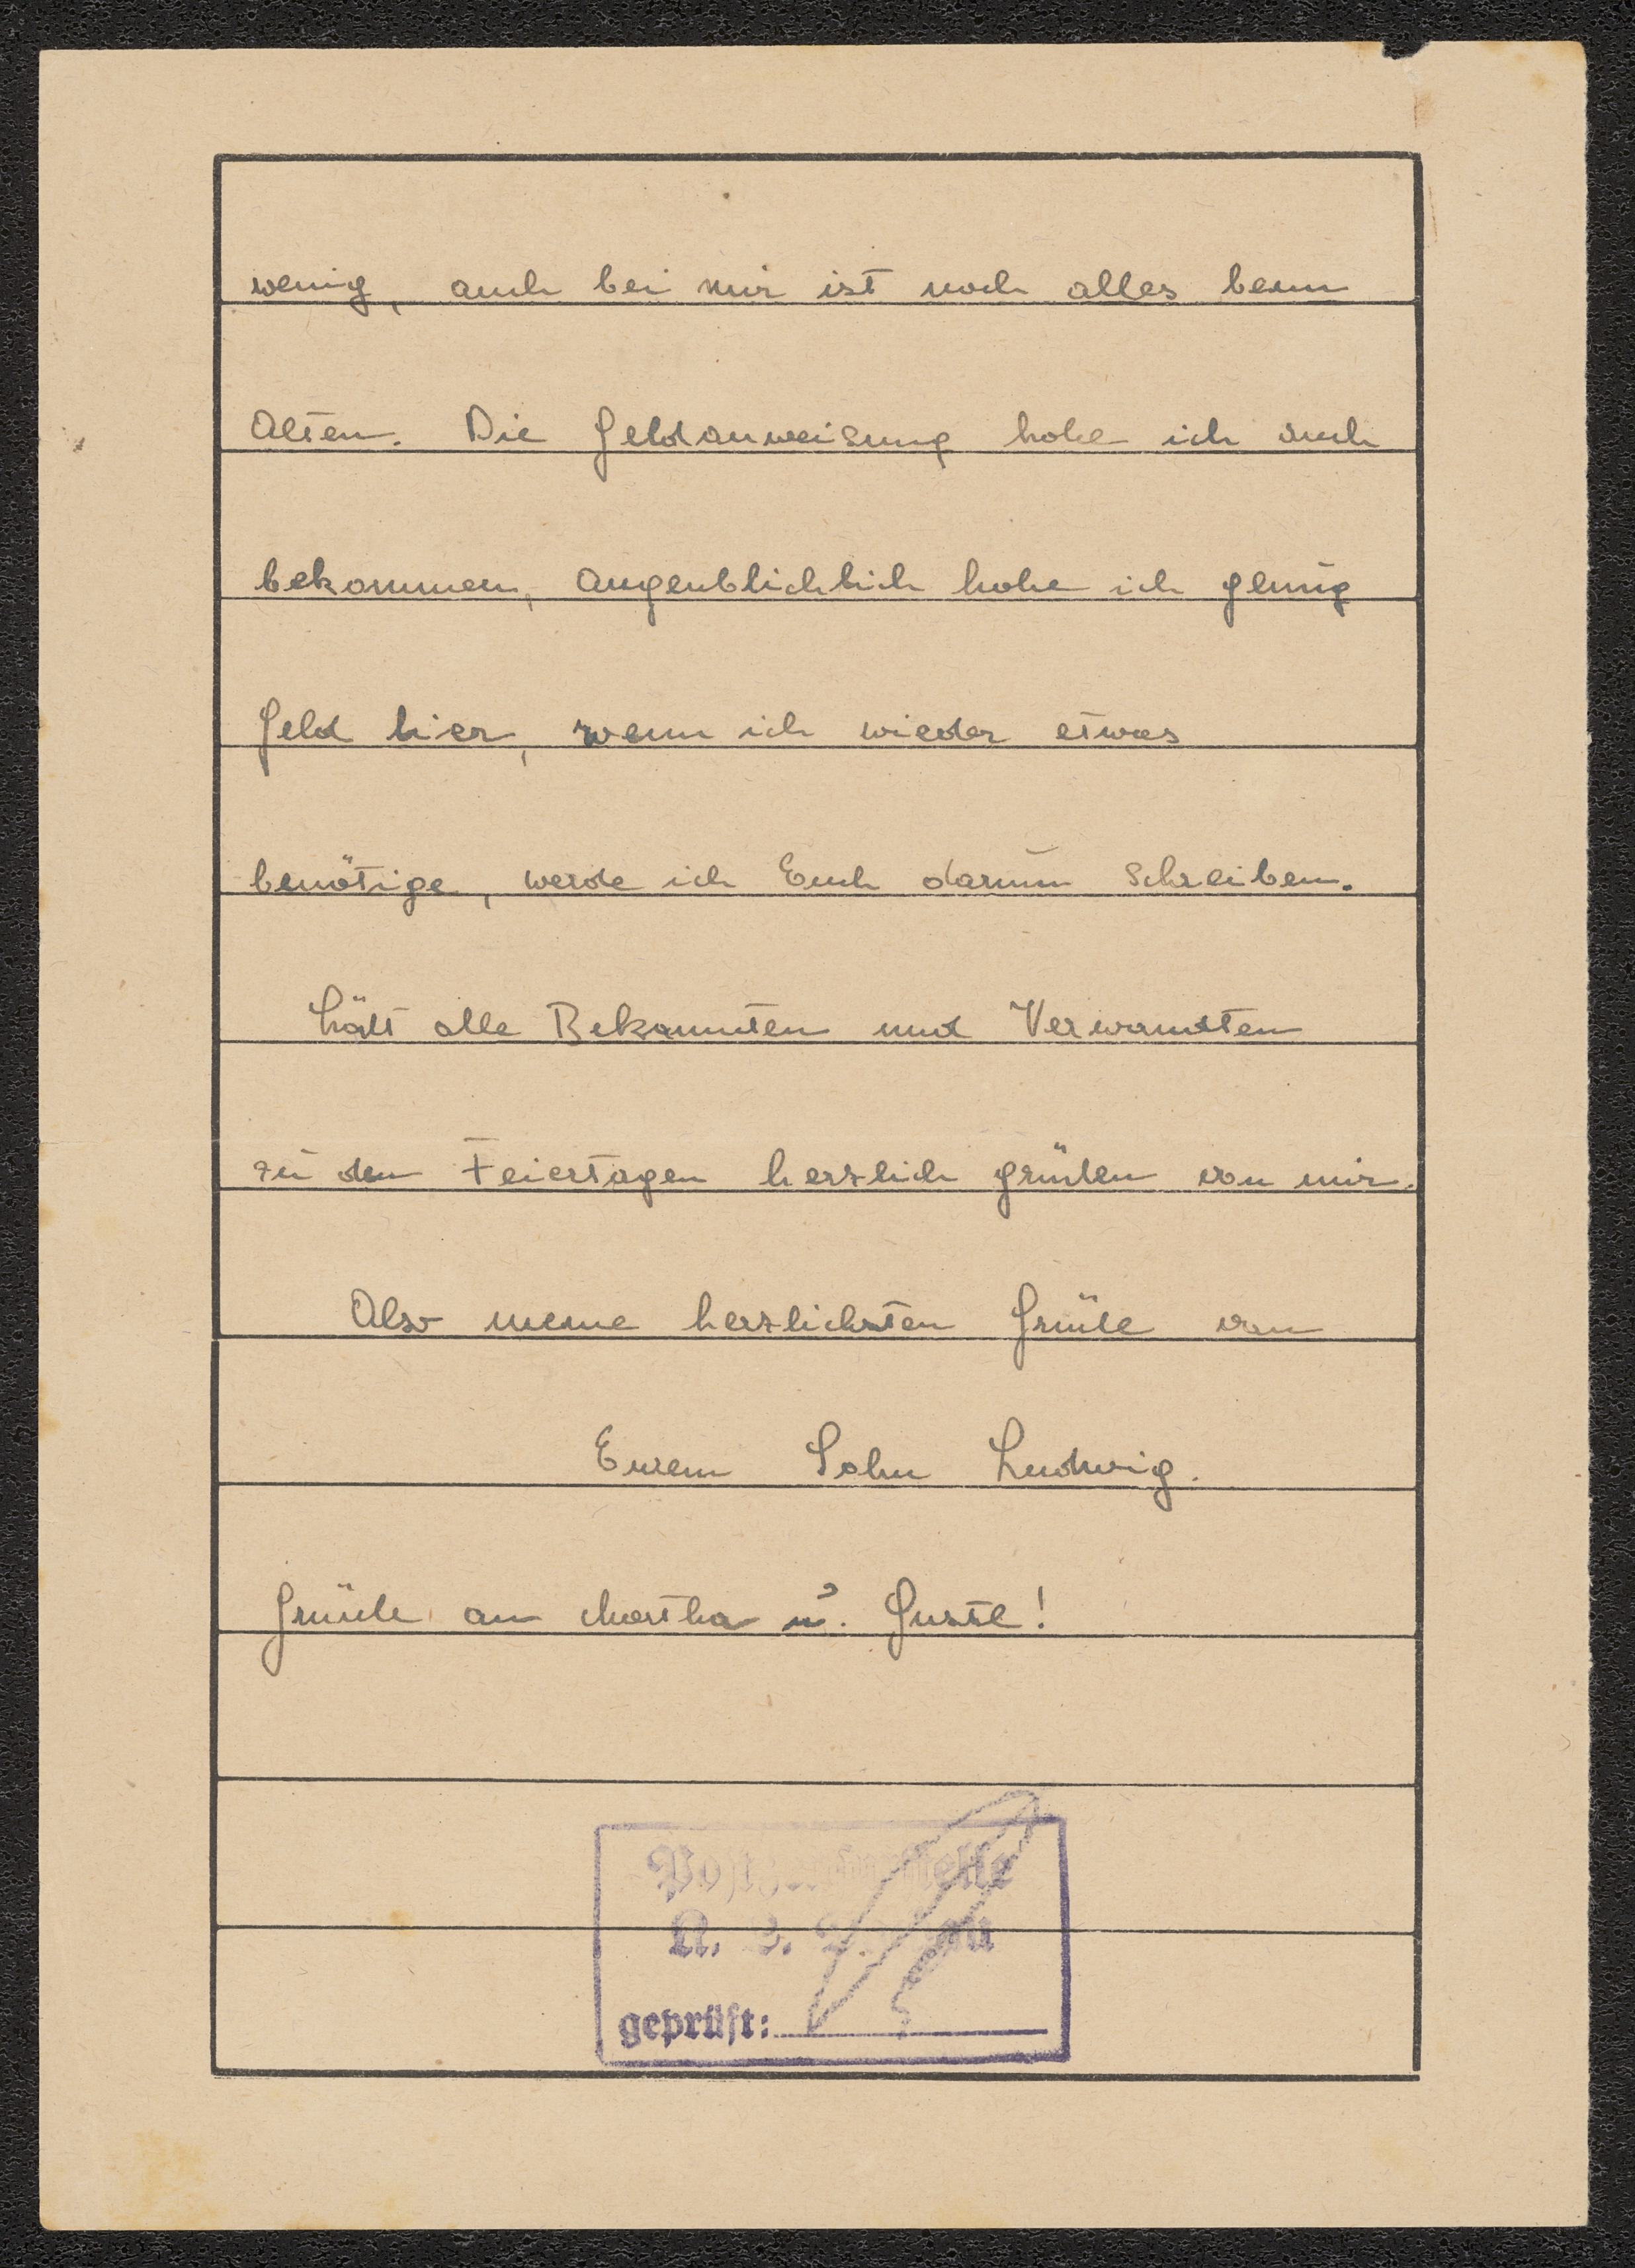 wenig, auch bei mir ist noch alles beim
Alten. Die Geldanweisung habe ich auch
bekommen, augenblicklich habe ich genug
Geld hier, wenn ich wieder etwas
benötige, werde ich Euch darum schreiben.
Läßt alle Bekannten und Verwandten
zu den Feiertagen herzlich grüßen von mir.
Also meine herzlichsten Grüße von
Eurem Sohn Ludwig.
Grüße an Martha u. Gustl!
Postzensurstelle
K. L.
geprüft: